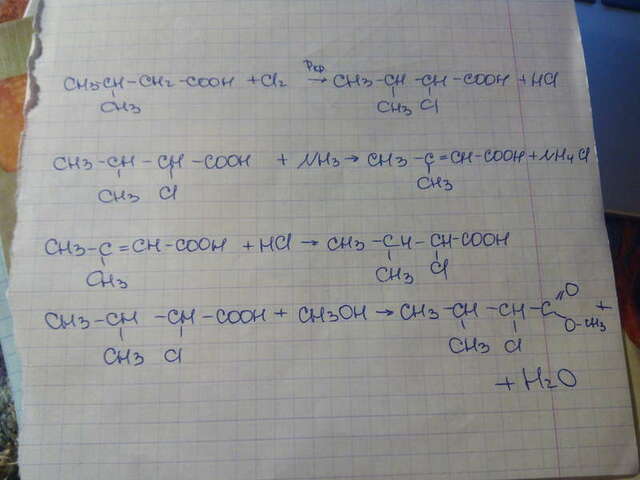 CH3-CH-CH2-COOH + Cl2 Pкр → CH3-CH-CH-COOH + HCl
CH3 CH3 Cl
CH3-CH-CH-COOH + NH3 → CH3-C=CH-COOH + NH4Cl
CH3 Cl CH3
CH3-C=CH-COOH + HCl → CH3-CH-CH-COOH
CH3 CH3 Cl
CH3-CH-CH-COOH + CH3OH → CH3-CH-CH-C=O +
CH3 Cl CH3 Cl O-CH3
+ H2O